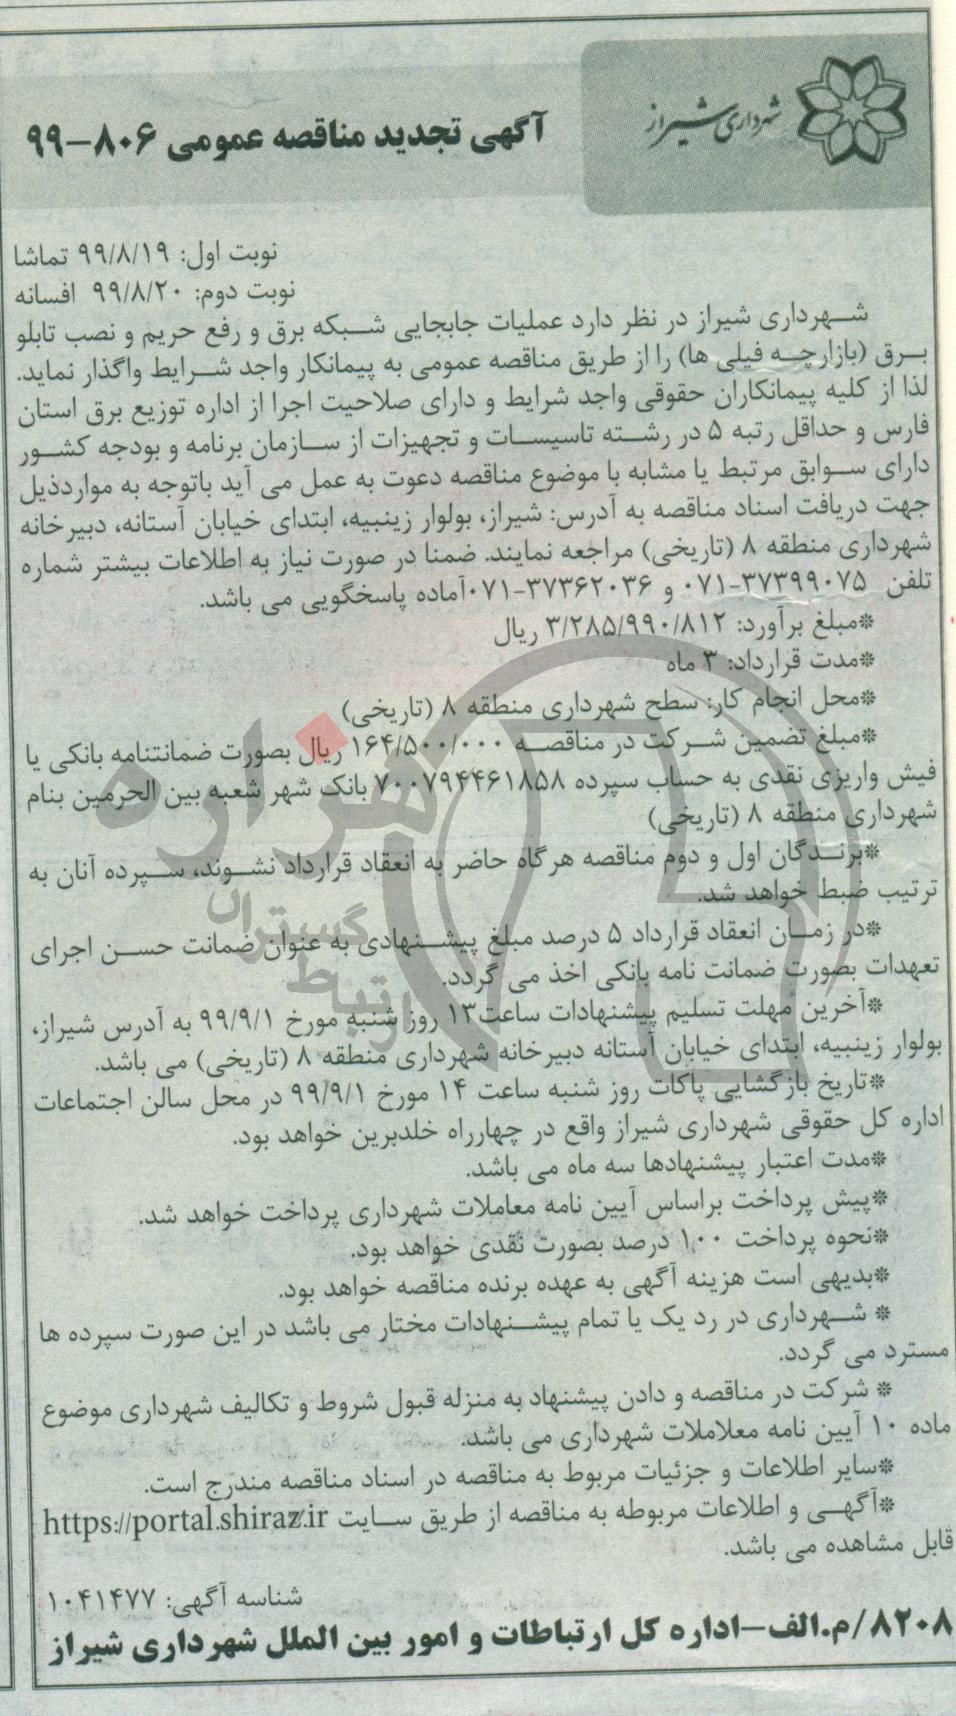 شهرداری شیراز
آگهی تجدید مناقصه عمومی ۸۰۶-۹۹
نوبت اول: ۹۹/۸/۱۹ تماشا
نوبت دوم: ۹۹/۸/۲۰ افسانه
شهرداری شیراز در نظر دارد عملیات جابجایی شبکه برق و رفع حریم و نصب تابلو
برق (بازارچه فیلی ها) را از طریق مناقصه عمومی به پیمانکار واجد شرایط واگذار نماید.
لذا از کلیه پیمانکاران حقوقی واجد شرایط و دارای صلاحیت اجرا از اداره توزیع برق استان
فارس و حداقل رتبه ۵ در رشته تاسیسات و تجهیزات از سازمان برنامه و بودجه کشور
دارای سوابق مرتبط یا مشابه با موضوع مناقصه دعوت به عمل می آید باتوجه به مواردذیل
جهت دریافت اسناد مناقصه به آدرس: شیراز، بولوار زینبیه، ابتدای خیابان آستانه، دبیرخانه
شهرداری منطقه ۸ (تاریخی) مراجعه نمایند. ضمنا در صورت نیاز به اطلاعات بیشتر شماره
تلفن ۳۷۳۹۹۰۷۵-۰۷۱ و ۳۷۳۶۲۰۳۶-۰۷۱ آماده پاسخگویی می باشد.
*مبلغ برآورد: ۳/۲۸۵/۹۹۰/۸۱۲ ریال
*مدت قرارداد: ۳ ماه
*محل انجام کار: سطح شهرداری منطقه ۸ (تاریخی)
*مبلغ تضمین شرکت در مناقصه ۱۶۴/۵۰۰/۰۰۰ ریال بصورت ضمانتنامه بانکی یا
فیش واریزی نقدی به حساب سپرده ۷۰۰۷۹۴۴۶۱۸۵۸ بانک شهر شعبه بین الحرمین بنام
شهرداری منطقه ۸ (تاریخی)
*برندگان اول و دوم مناقصه هرگاه حاضر به انعقاد قرارداد نشوند، سپرده آنان به
ترتیب ضبط خواهد شد.
*در زمان انعقاد قرارداد ۵ درصد مبلغ پیشنهادی به عنوان ضمانت حسن اجرای
تعهدات بصورت ضمانت نامه بانکی اخذ می گردد.
*آخرین مهلت تسلیم پیشنهادات ساعت۱۳ روز شنبه مورخ ۹۹/۹/۱ به آدرس شیراز،
بولوار زینبیه، ابتدای خیابان آستانه دبیرخانه شهرداری منطقه ۸ (تاریخی) می باشد.
*تاریخ بازگشایی پاکات روز شنبه ساعت ۱۴ مورخ ۹۹/۹/۱ در محل سالن اجتماعات
اداره کل حقوقی شهرداری شیراز واقع در چهارراه خلدبرین خواهد بود.
*مدت اعتبار پیشنهادها سه ماه می باشد.
*پیش پرداخت براساس آیین نامه معاملات شهرداری پرداخت خواهد شد.
*نحوه پرداخت ۱۰۰ درصد بصورت نقدی خواهد بود.
*بدیهی است هزینه آگهی به عهده برنده مناقصه خواهد بود.
* شهرداری در رد یک یا تمام پیشنهادات مختار می باشد در این صورت سپرده ها
مسترد می گردد.
* شرکت در مناقصه و دادن پیشنهاد به منزله قبول شروط و تکالیف شهرداری موضوع
ماده ۱۰ آیین نامه معلاملات شهرداری می باشد.
*سایر اطلاعات و جزئیات مربوط به مناقصه در اسناد مناقصه مندرج است.
*آگهی و اطلاعات مربوطه به مناقصه از طریق سایت https://portal.shiraz.ir
قابل مشاهده می باشد.
شناسه آگهی: ۱۰۴۱۴۷۷
۸۲۰۸/م.الف-اداره کل ارتباطات و امور بین الملل شهرداری شیراز
هزاره
ارتباط گستران